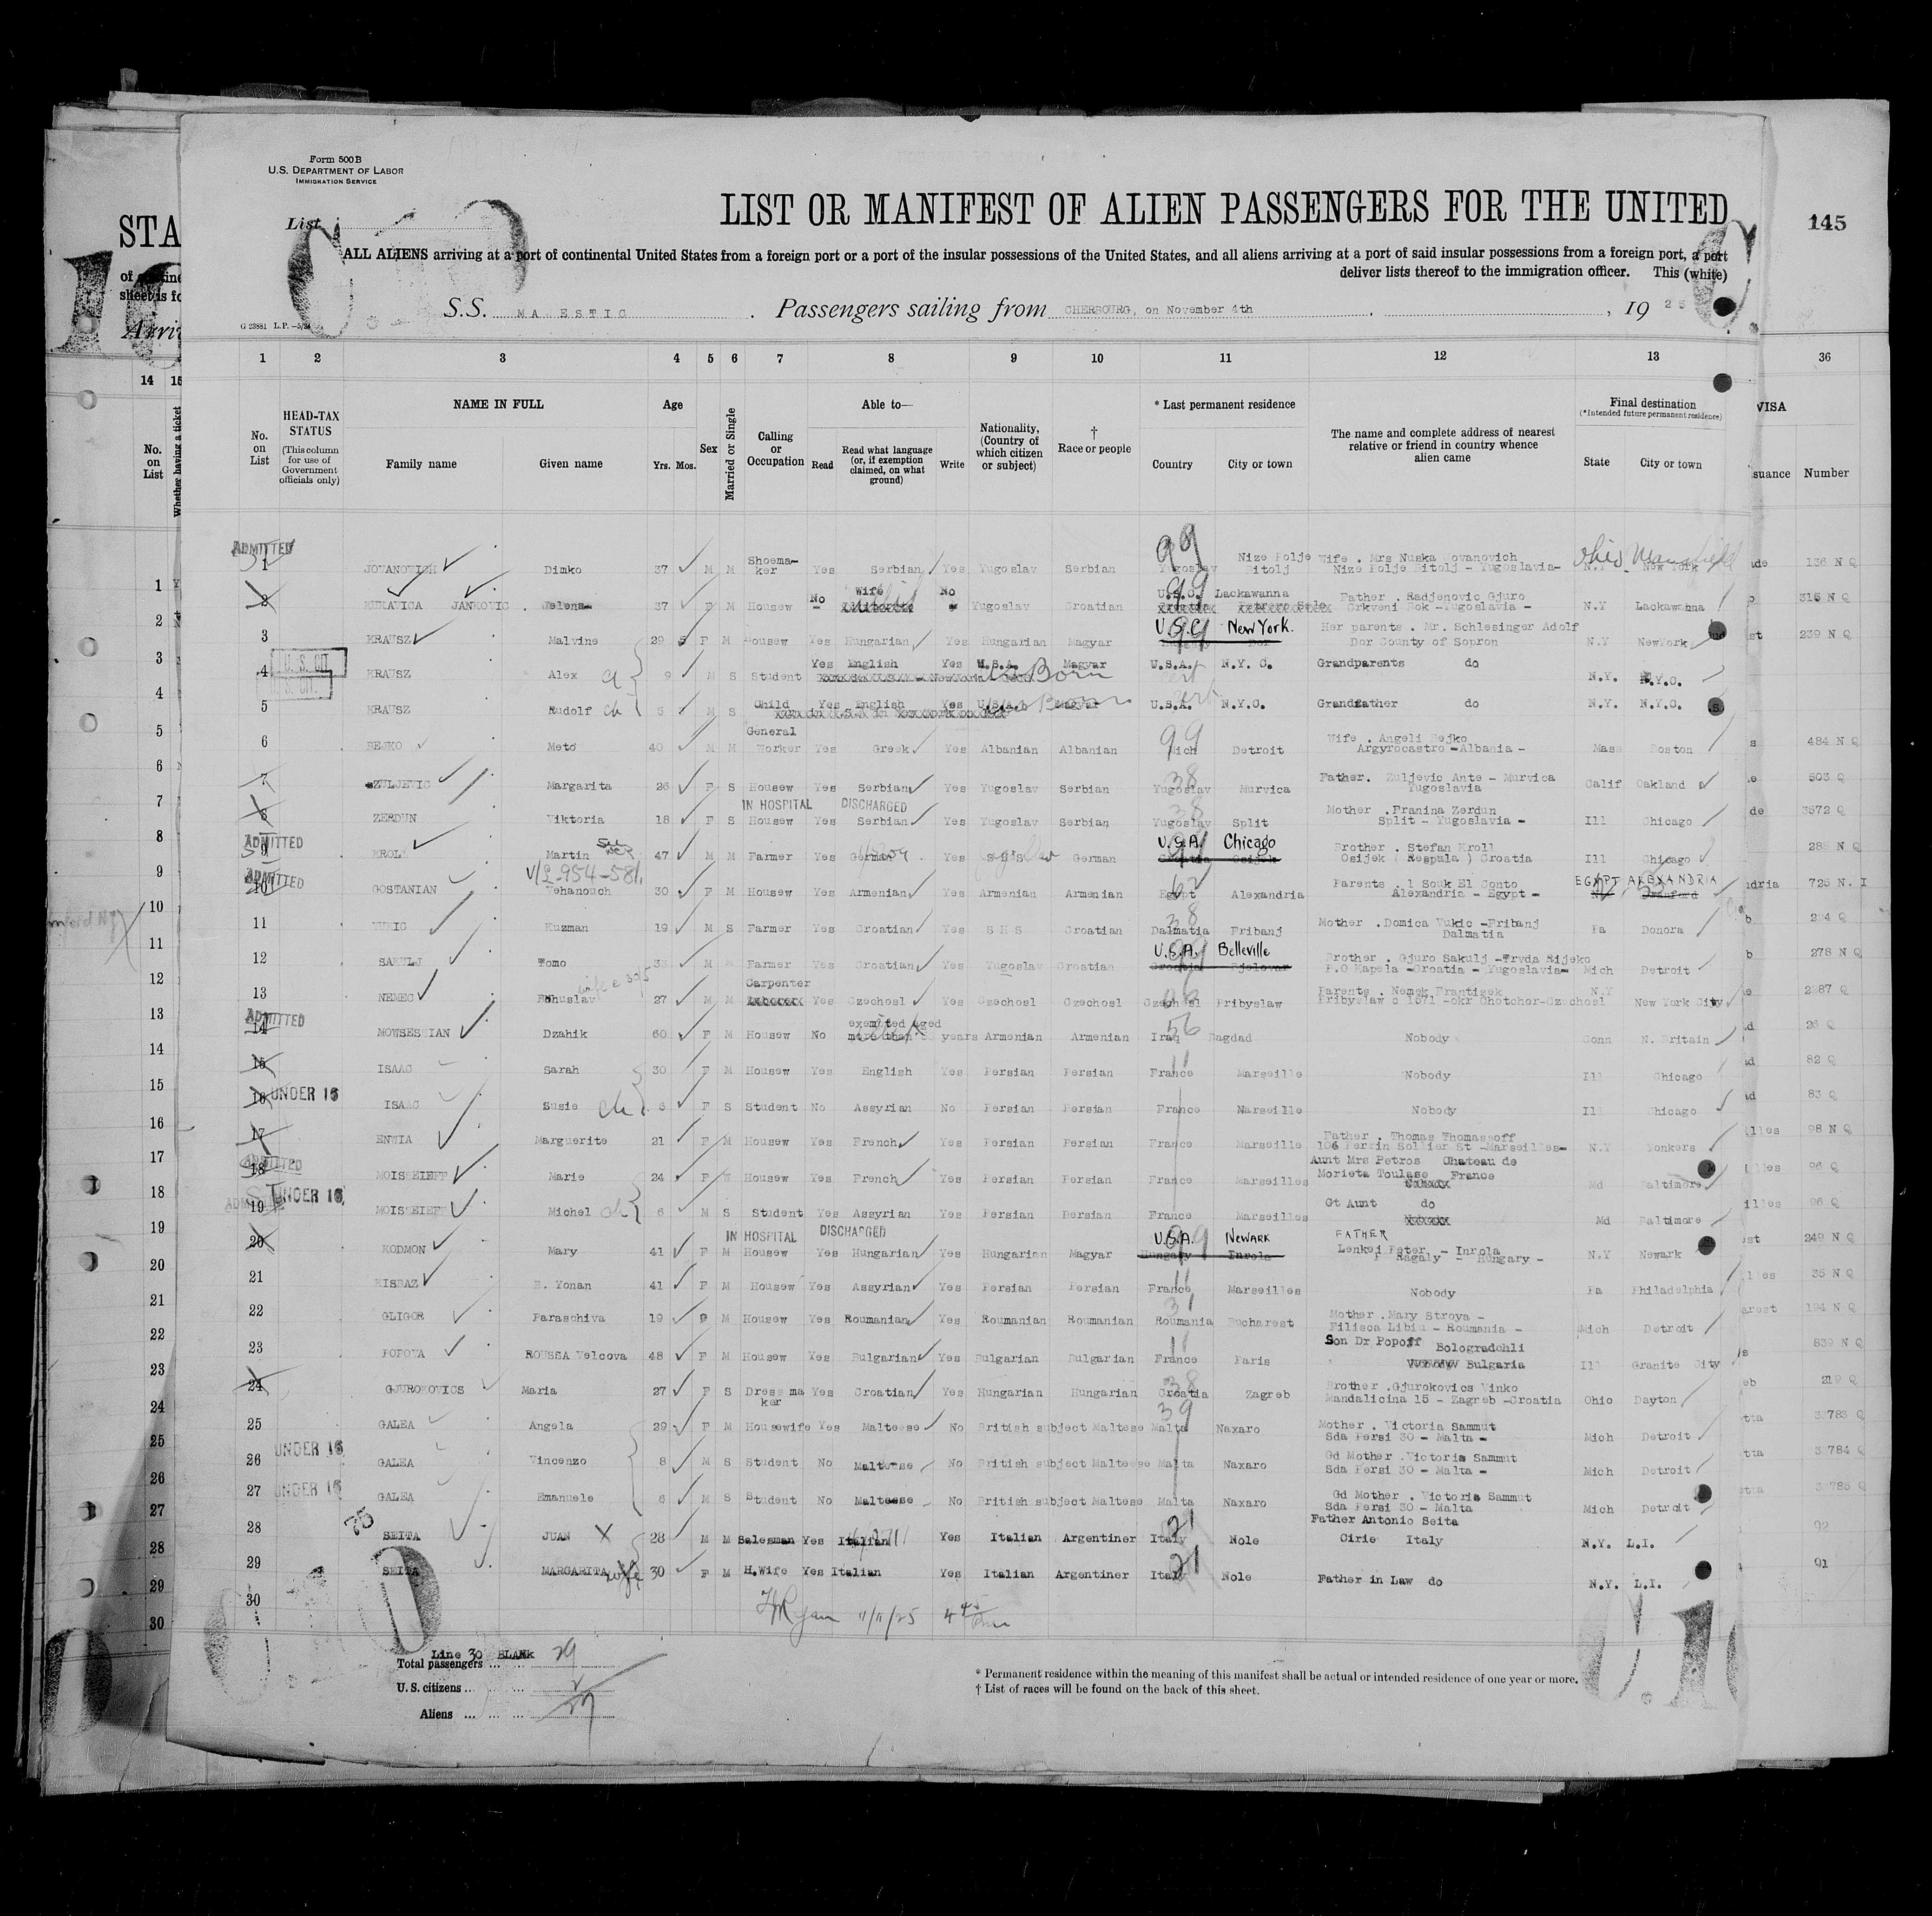 Form 500 B
U.S. DEPARTMENT OF LABOR
IMMIGRATION SERVICE
LIST OR MANIFEST OF ALIEN PASSENGERS FOR THE UNITED
STA
145
List
ALL ALIENS arriving at a port of continental United States from a foreign port or a port of the insular possessions of the United States, and all aliens arriving at a port of said insular possessions from a foreign port, a port
deliver lists thereof to the immigration officer. This (white)
S.S. MAJESTIC. Passengers sailing from CHERBOURG, on November 4th, 19 25
G 23881 L.P. —5/24
1 2 3 4 5 6 7 8 9 10 11 12 13 36
14 15
No. on List
HEAD-TAX STATUS
(This column for use of Government officials only)
NAME IN FULL
Family name Given name
Age
Yrs. Mos.
Sex
Married or Single
Calling or Occupation
Able to—
Read
Read what language (or, if exemption claimed, on what ground)
Write
Nationality, (Country of which citizen or subject)
† Race or people
* Last permanent residence
Country City or town
The name and complete address of nearest relative or friend in country whence alien came
Final destination
(*Intended future permanent residence)
State City or town
VISA
suance Number
No. on List
Whether having a ticket
ADMITTED
1 JOWANOWICH Dimko 37 M M Shoema-ker Yes Serbian Yes Yugoslav Serbian 99 Yugoslav Nize Polje Bitolj Wife . Mrs Nuska Jovanovich Nize Polje Bitolj - Yugoslavia- N.Y. New York Ohio Mansfield 136 N Q
2 JANKOVIC Jelena 37 F M Housew No Wife No Yugoslav Croatian U.S.C. Lackawanna Father . Radjenovic Gjuro Crkveni Bok -Yugoslavia - N.Y Lackawanna 315 N Q
3 KRAUSZ Malvine 29 5 F M Housew Yes Hungarian Yes Hungarian Magyar U.S.C. New York. Her parents . Mr. Schlesinger Adolf Dor County of Sopron N.Y NewYork 239 N Q
U. S. CIT.
4 KRAUSZ Alex ch 9 M S Student Yes English Yes U.S.A. Born Magyar U.S.A. N.Y. C. Grandparents do N.Y. N.Y.C.
U.S. CIT.
5 KRAUSZ Rudolf ch 5 M S Child Yes English Yes U.S.A. Born Magyar U.S.A. N.Y.C. Grandfather do N.Y. N.Y.C.
6 BEJKO Meto 40 M M General Worker Yes Greek Yes Albanian Albanian 99 Mich Detroit Wife . Angeli Bejko Argyrocastro -Albania - Mass Boston 484 N Q
7 ZULJEVIC Margarita 26 F S Housew Yes Serbian Yes Yugoslav Serbian 38 Yugoslav Murvica Father. Zuljevic Ante - Murvica Yugoslavia Calif Oakland 503 N Q
IN HOSPITAL DISCHARGED
8 ZERDUN Viktoria 18 F S Housew Yes Serbian Yes Yugoslav Serbian 38 Yugoslav Split Mother .Franina Zerdun Split - Yugoslavia - Ill Chicago 3572 N Q
ADMITTED
9 KROLL Martin 47 M M Farmer Yes German Yes S H S German U.S.A. Chicago Croatia Osijek Brother . Stefan Kroll Osijek ( Respula ) Croatia Ill Chicago 288 N Q
V/2-954-581.
ADMITTED
10 GOSTANIAN Vehanouch 30 F M Housew Yes Armenian Yes Armenian Armenian 62 Egypt Alexandria Parents . 1 Souk El Conto Alexandria - Egypt - EGYPT ALEXANDRIA 725 N. I
11 VUKIC Kuzman 19 M S Farmer Yes Croatian Yes S H S Croatian 38 Dalmatia Pribanj Mother .Domica Vukic -Pribanj Dalmatia Pa Donora 224 Q
12 SAKULJ Tomo M M Farmer Yes Croatian Yes Yugoslav Croatian U.S.A. Belleville Croatia Bjelovar Brother . Gjuro Sakulj -Trvda Rijeko P.O Kapela -Croatia - Yugoslavia- Mich Detroit 278 N Q
13 NEMEC Bohuslav 27 M M Carpenter Yes Czechosl Yes Czechosl Czechosl Czechosl Pribyslaw Parents . Nemek Frantisek Pribyslaw c 1571 -okr Chotchor-Czechosl N.Y New York City 2287 N Q
ADMITTED
14 MOWSESSIAN Dzahik 60 F M Housew No exempted aged more than 55 years Armenian Armenian 56 Iraq Bagdad Nobody Conn N. Britain 26 Q
15 ISAAC Sarah 30 F M Housew Yes English Yes Persian Persian 11 France Marseille Nobody Ill Chicago 82 Q
16 UNDER 16 ISAAC Susie ch 6 F S Student No Assyrian No Persian Persian France Marseille Nobody Ill Chicago 83 Q
17 ENWIA Marguerite 21 F M Housew Yes French Yes Persian Persian France Marseille Father . Thomas Thomassoff 106 Perrin Sollier St -Marseilles- N.Y Yonkers 98 N Q
ADMITTED
18 MOISSEIEFF Marie 24 F W Housew Yes French Yes Persian Persian France Marseilles Aunt Mrs Petros Chateau de Morieta Toulase France Md Baltimore 96 Q
UNDER 16
19 MOISSEIEFF Michel ch 6 M S Student Yes Assyrian Yes Persian Persian France Marseilles Gt Aunt do Md Baltimore 96 Q
IN HOSPITAL DISCHARGED
20 KODMON Mary 41 F M Housew Yes Hungarian Yes Hungarian Magyar U.S.A. NEWARK Hungary Inrola FATHER Lenkei Peter - Inrola P Ragaly - Hungary - N.Y Newark 249 N Q
21 EISBAZ E. Yonan 41 F M Housew Yes Assyrian Yes Persian Persian 11 France Marseilles Nobody Pa Philadelphia 35 N Q
22 GLIGOR Paraschiva 19 F M Housew Yes Roumanian Yes Roumanian Roumanian 31 Roumania Bucharest Mother .Mary Stroya - Filisca Libiu - Roumania - Mich Detroit 194 N Q
23 POPOVA ROUSSA Velcova 48 F M Housew Yes Bulgarian Yes Bulgarian Bulgarian 11 France Paris Son Dr Popoff Bologradchli Bulgaria Ill Granite City 839 N Q
24 GJUROKOVICS Maria 27 F S Dress ma ker Yes Croatian Yes Hungarian Hungarian 38 Croatia Zagreb Brother .Gjurokovics Vinko Mandalicina 15 - Zagreb -Croatia Ohio Dayton 219 Q
25 GALEA Angela 29 F M Housewife Yes Malteese No British subject Maltese 39 Malta Naxaro Mother . Victoria Sammut Sda Persi 30 - Malta - Mich Detroit
26 UNDER 16 GALEA Vincenzo 8 M S Student No Malteese No British subject Malteese Malta Naxaro Gd Mother .Victoria Sammut Sda Persi 30 - Malta - Mich Detroit
27 UNDER 16 GALEA Emanuele 6 M S Student No Malteese No British subject Maltese Malta Naxaro Gd Mother . Victoria Sammut Sda Persi 30 - Malta Mich Detroit
28 SEITA JUAN X 28 M M Salesman Yes Italian Yes Italian Argentiner 21 Italy Nole Father Antonio Seita Cirie Italy N.Y. L.I. 92
29 SEITA MARGARITA wife 30 F M H.Wife Yes Italian Yes Italian Argentiner 21 Italy Nole Father in Law do N.Y. L.I. 91
30
11/11/25
75
Line 30 BLANK
Total passengers ... 29
U. S. citizens ... 2
Aliens ... 27
* Permanent residence within the meaning of this manifest shall be actual or intended residence of one year or more.
† List of races will be found on the back of this sheet.